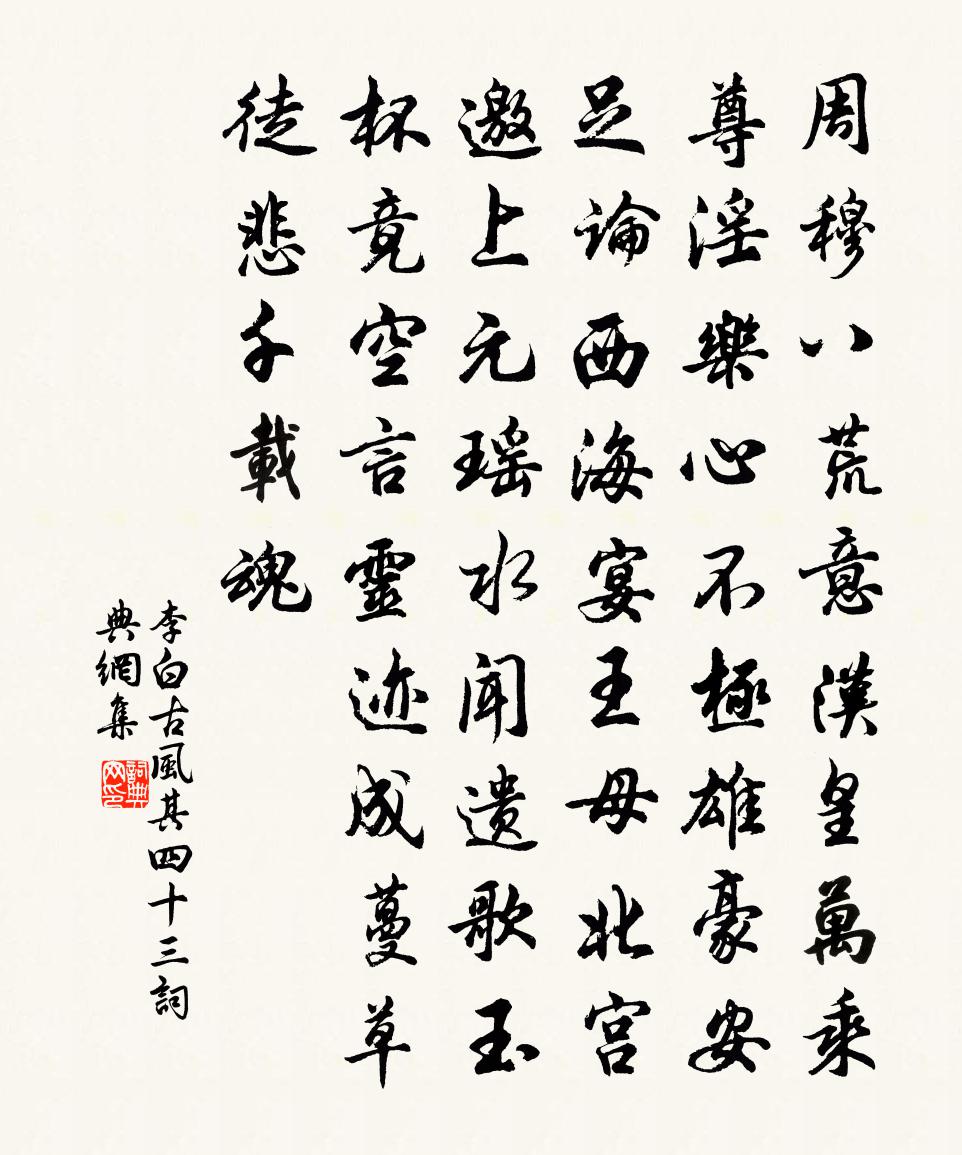 周穆八荒意漢皇萬乘
尊淫樂心不極雄豪安
足論西海宴王母北宮
邀上元瑶水闻遗歌玉
杯竟空言靈迹成蔓草
徒悲千載魂
李白古風其四十三詞
典網集
詞典
网印